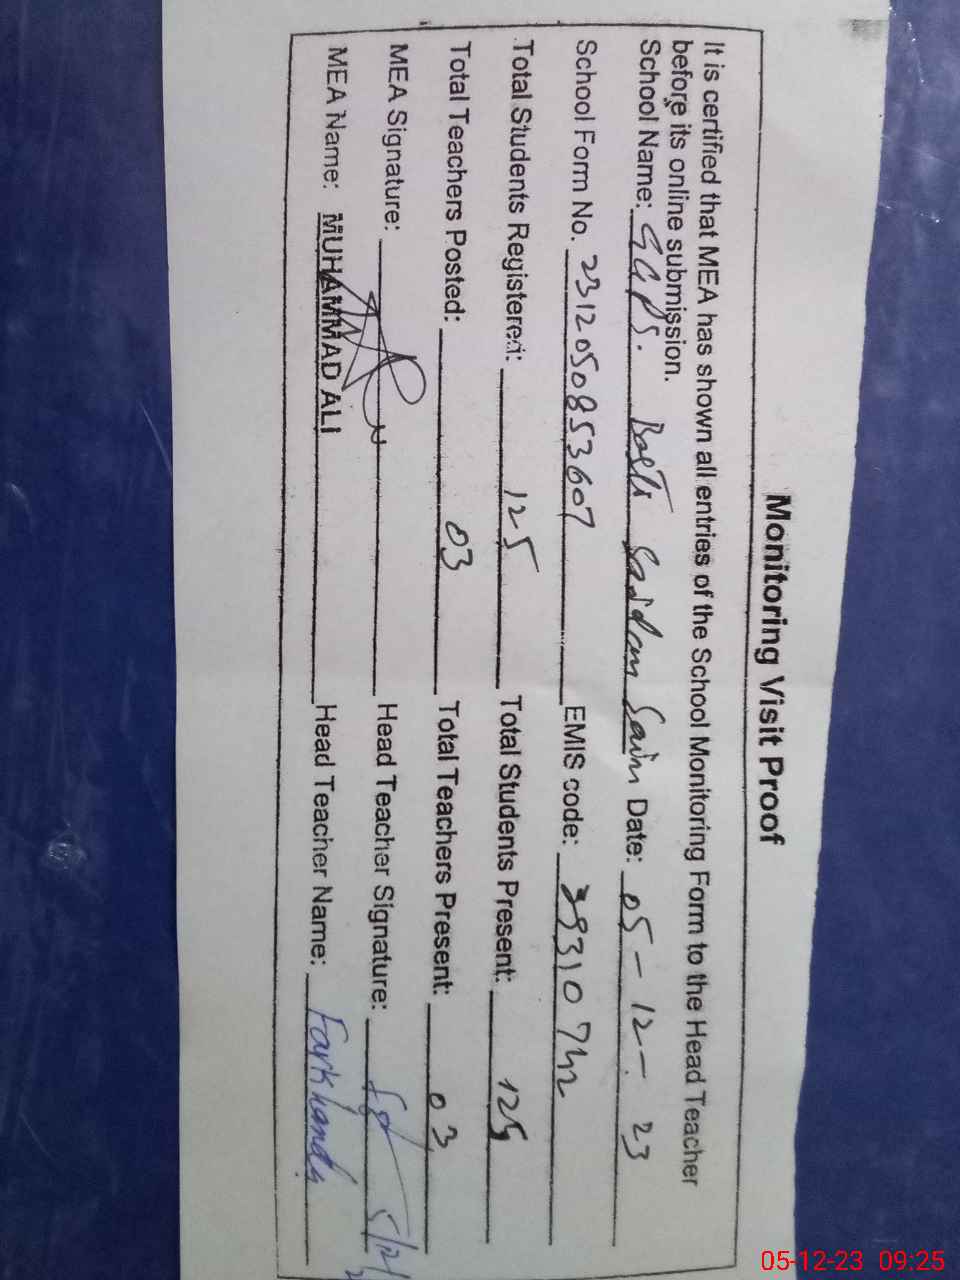 Monitoring Visit Proof
It is certified that MEA has shown all entries of the School Monitoring Form to the Head Teacher
before its online submission.
School Name: GGPS. Basti Saidan Sain Date: 05-12-23
School Form No. 2312050853607 EMIS code:
Total Students Registered: 125 Total Students Present: 125
Total Teachers Posted: 03 Total Teachers Present: 03
MEA Signature: Head Teacher Signature: 5/12/
MEA Name: MUHAMMAD ALI Head Teacher Name: Farkhanda
05-12-23 09:25